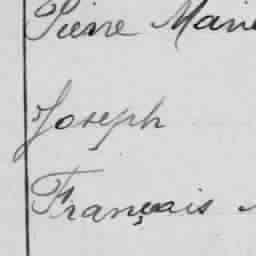 Pierre Marie
Joseph
Français